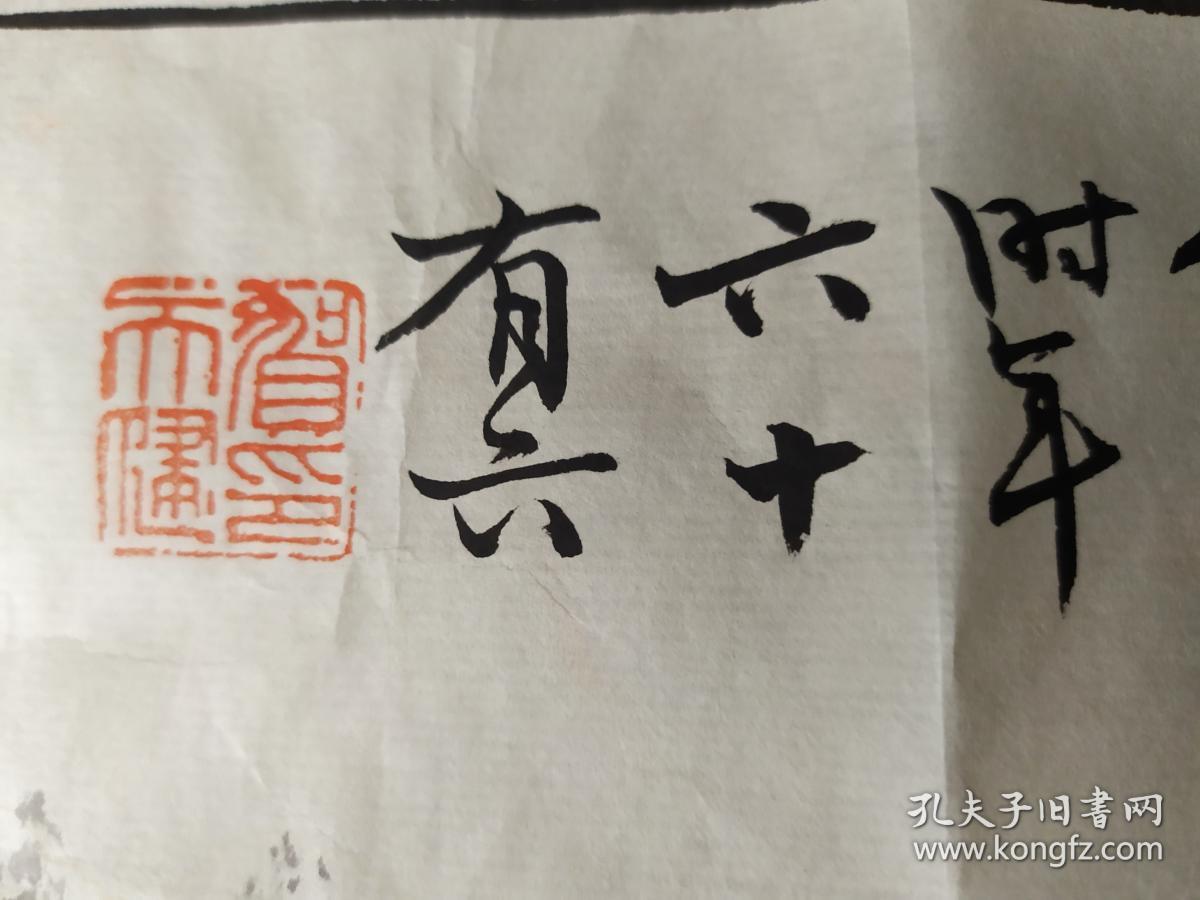 时年
六十
有六
贺印
天健
孔夫子旧書网
www.kongfz.com